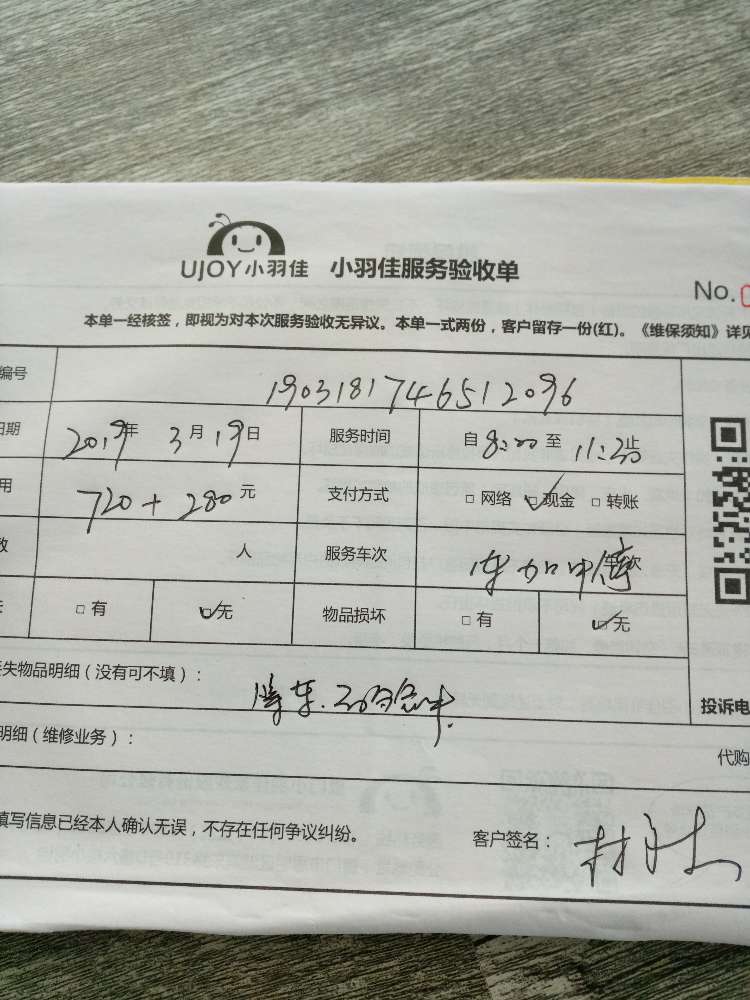 UJOY小羽佳 小羽佳服务验收单
No.0
本单一经核签，即视为对本次服务验收无异议。本单一式两份，客户留存一份(红)。《维保须知》详见
编号 1903181746512096
日期 2019年 3月19日 服务时间 自8:00至11:20止
用 720+280元 支付方式 □网络 ☑现金 □转账
数 人 服务车次 车次
□有 ☑无 物品损坏 □有 ☑无
失物品明细（没有可不填）：
投诉电
明细（维修业务）：
代购
填写信息已经本人确认无误，不存在任何争议纠纷。 客户签名：